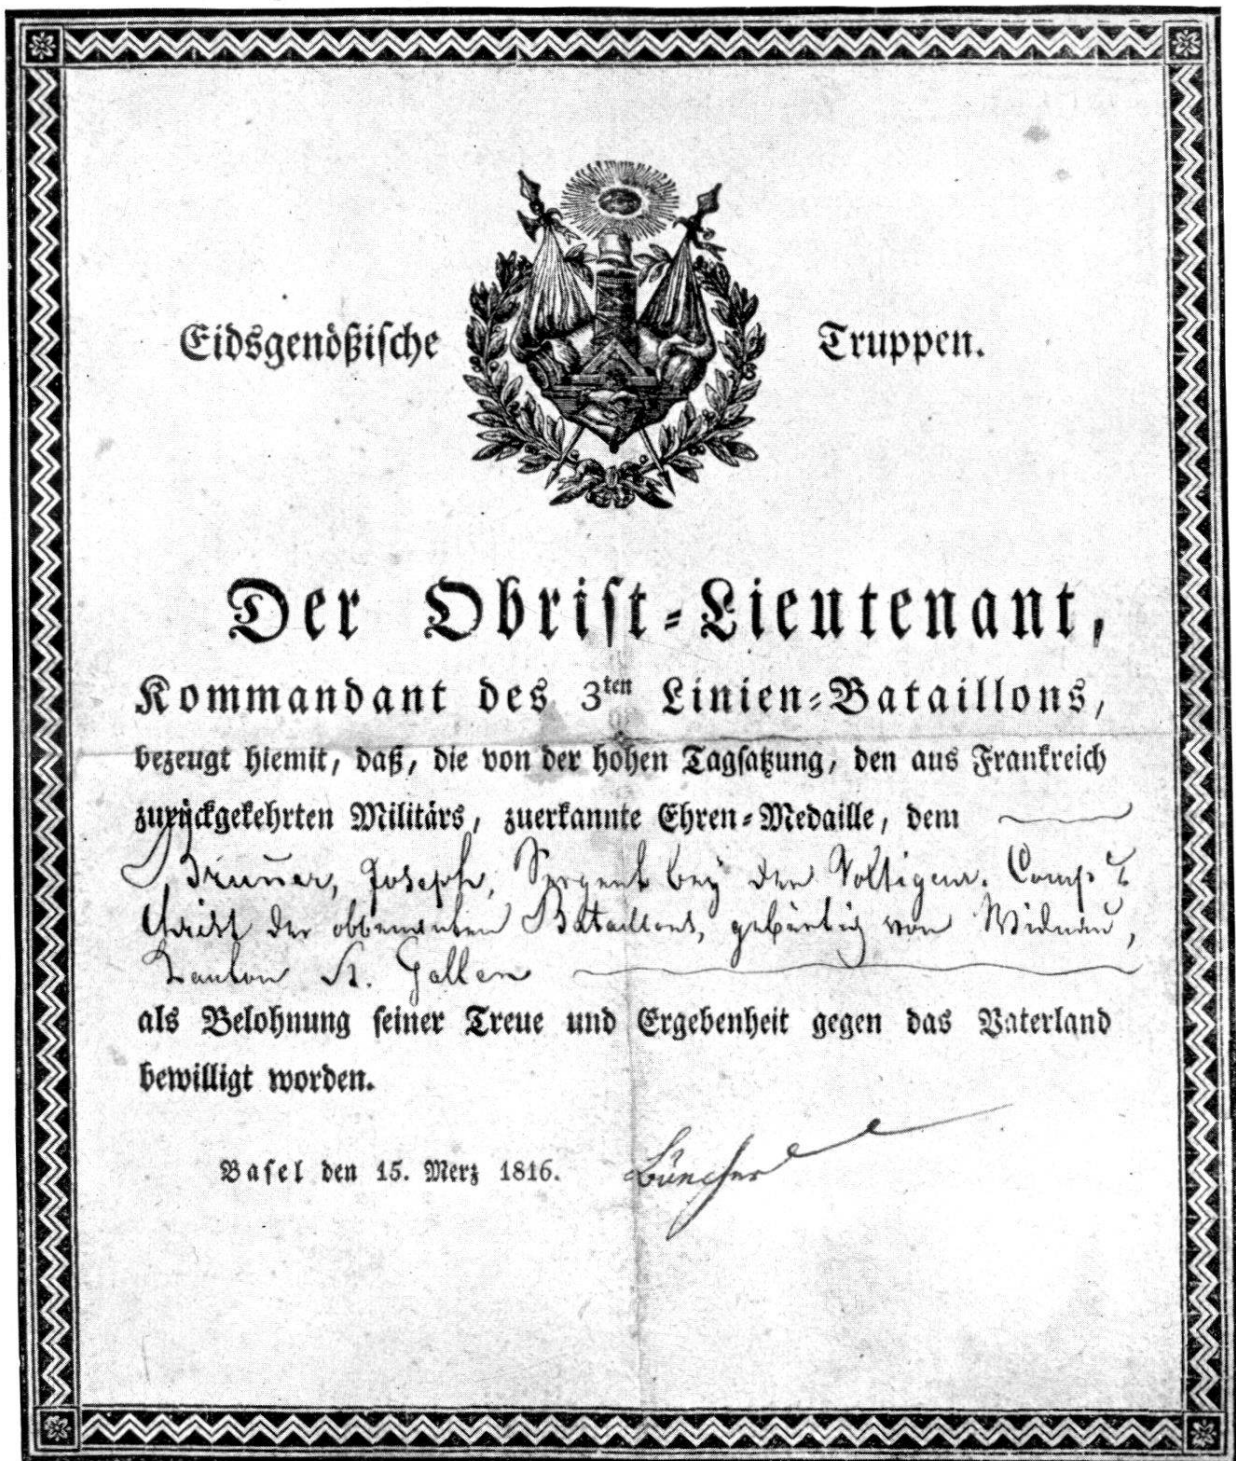 Eidsgenößische Truppen.
Der Obrist-Lieutenant,
Kommandant des 3ten Linien-Bataillons,
bezeugt hiemit, daß, die von der hohen Tagsatzung, den aus Frankreich
zurückgekehrten Militärs, zuerkannte Ehren-Medaille, dem
Joseph, Sergent bey der Voltigeur. Comp.
der Bataillons, gebürtig von Widnau,
Kanton St. Gallen
als Belohnung seiner Treue und Ergebenheit gegen das Vaterland
bewilligt worden.
Basel den 15. Merz 1816.